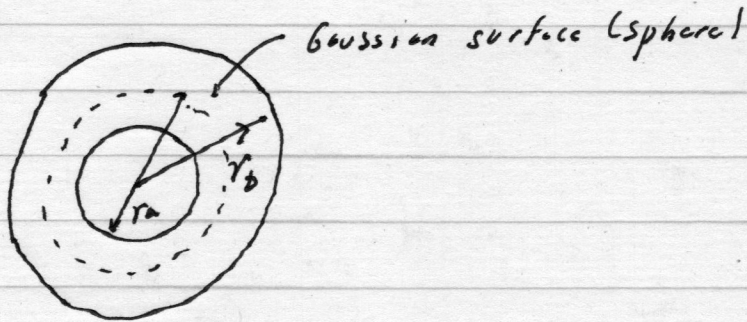 Gaussian surface (sphere)
r_b
r_a